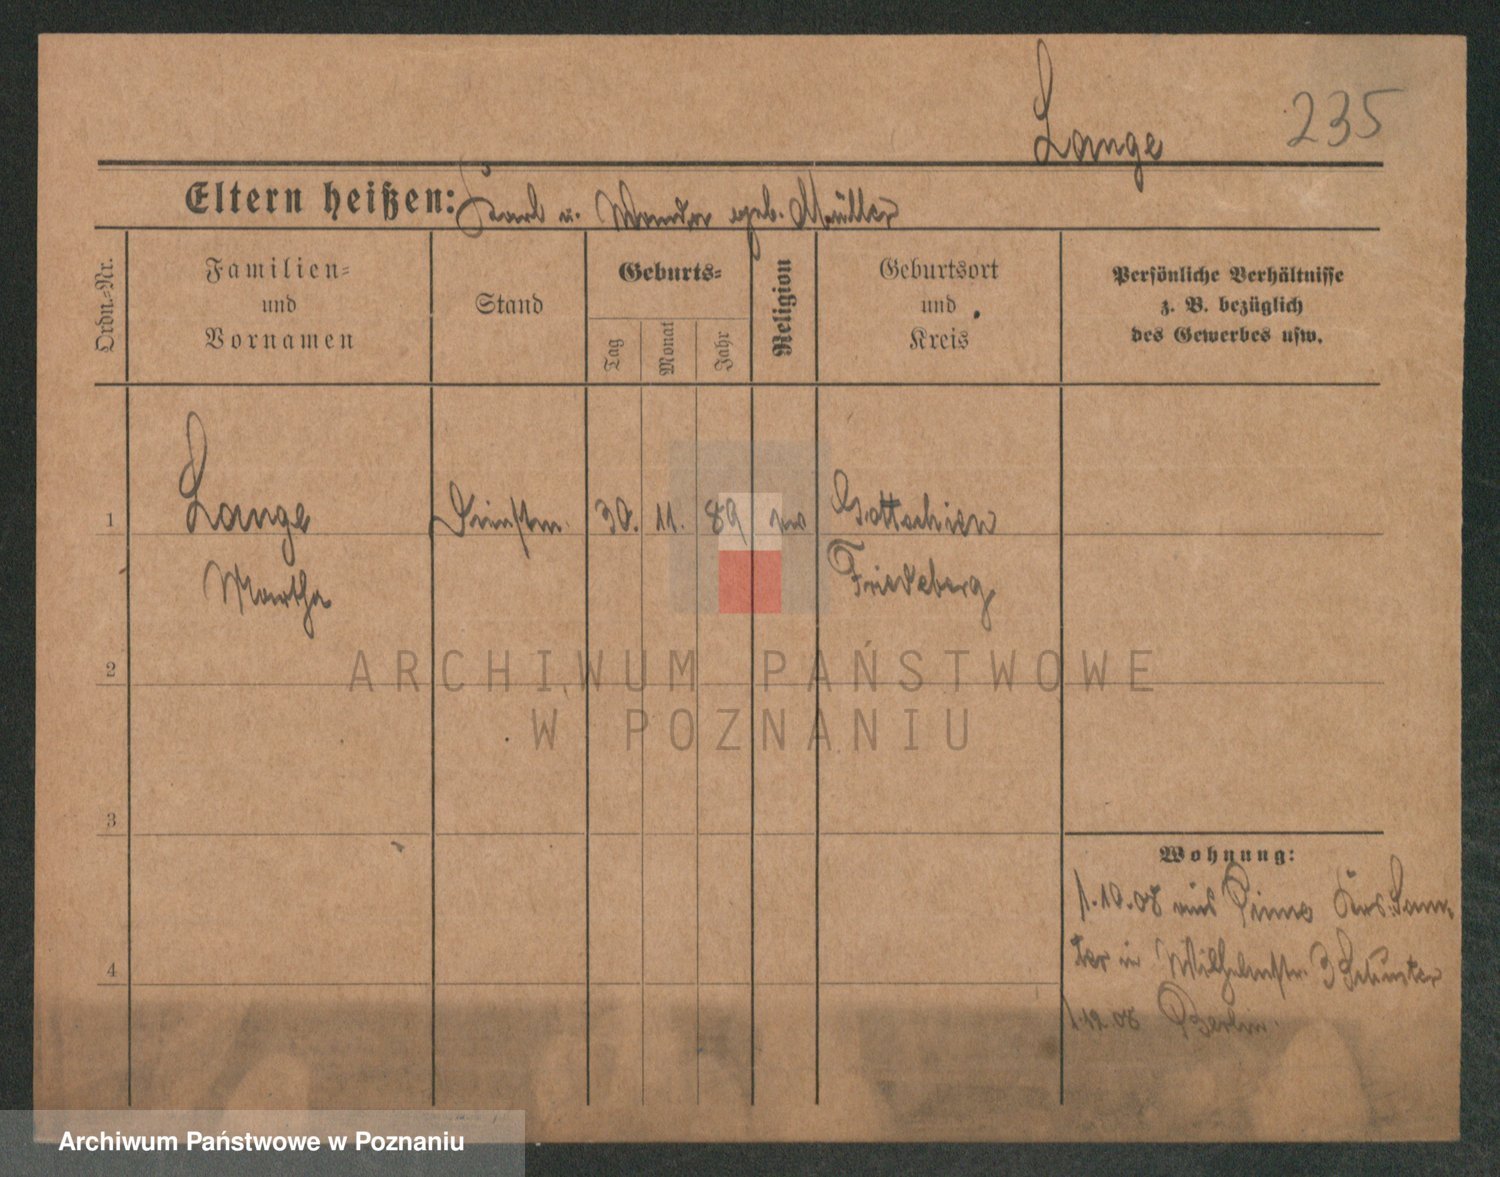 Lange
235
Eltern heißen: Karl u. Wanda geb. Müller
Ordn.=Nr.
Familien=
und
Vornamen
Stand
Geburts=
Tag
Monat
Jahr
Religion
Geburtsort
und
Kreis
Persönliche Verhältnisse
z. B. bezüglich
des Gewerbes usw.
1
Lange
Martha
Dienstm.
30.
11.
89
Gottschien
Friedeberg
2
3
4
Wohnung:
1.10.08 aus Pinne Krs. Sam-
ter in Wilhelmstr. 3 Schuster
1.12.08 Berlin.
ARCHIWUM PAŃSTWOWE
W POZNANIU
Archiwum Państwowe w Poznaniu